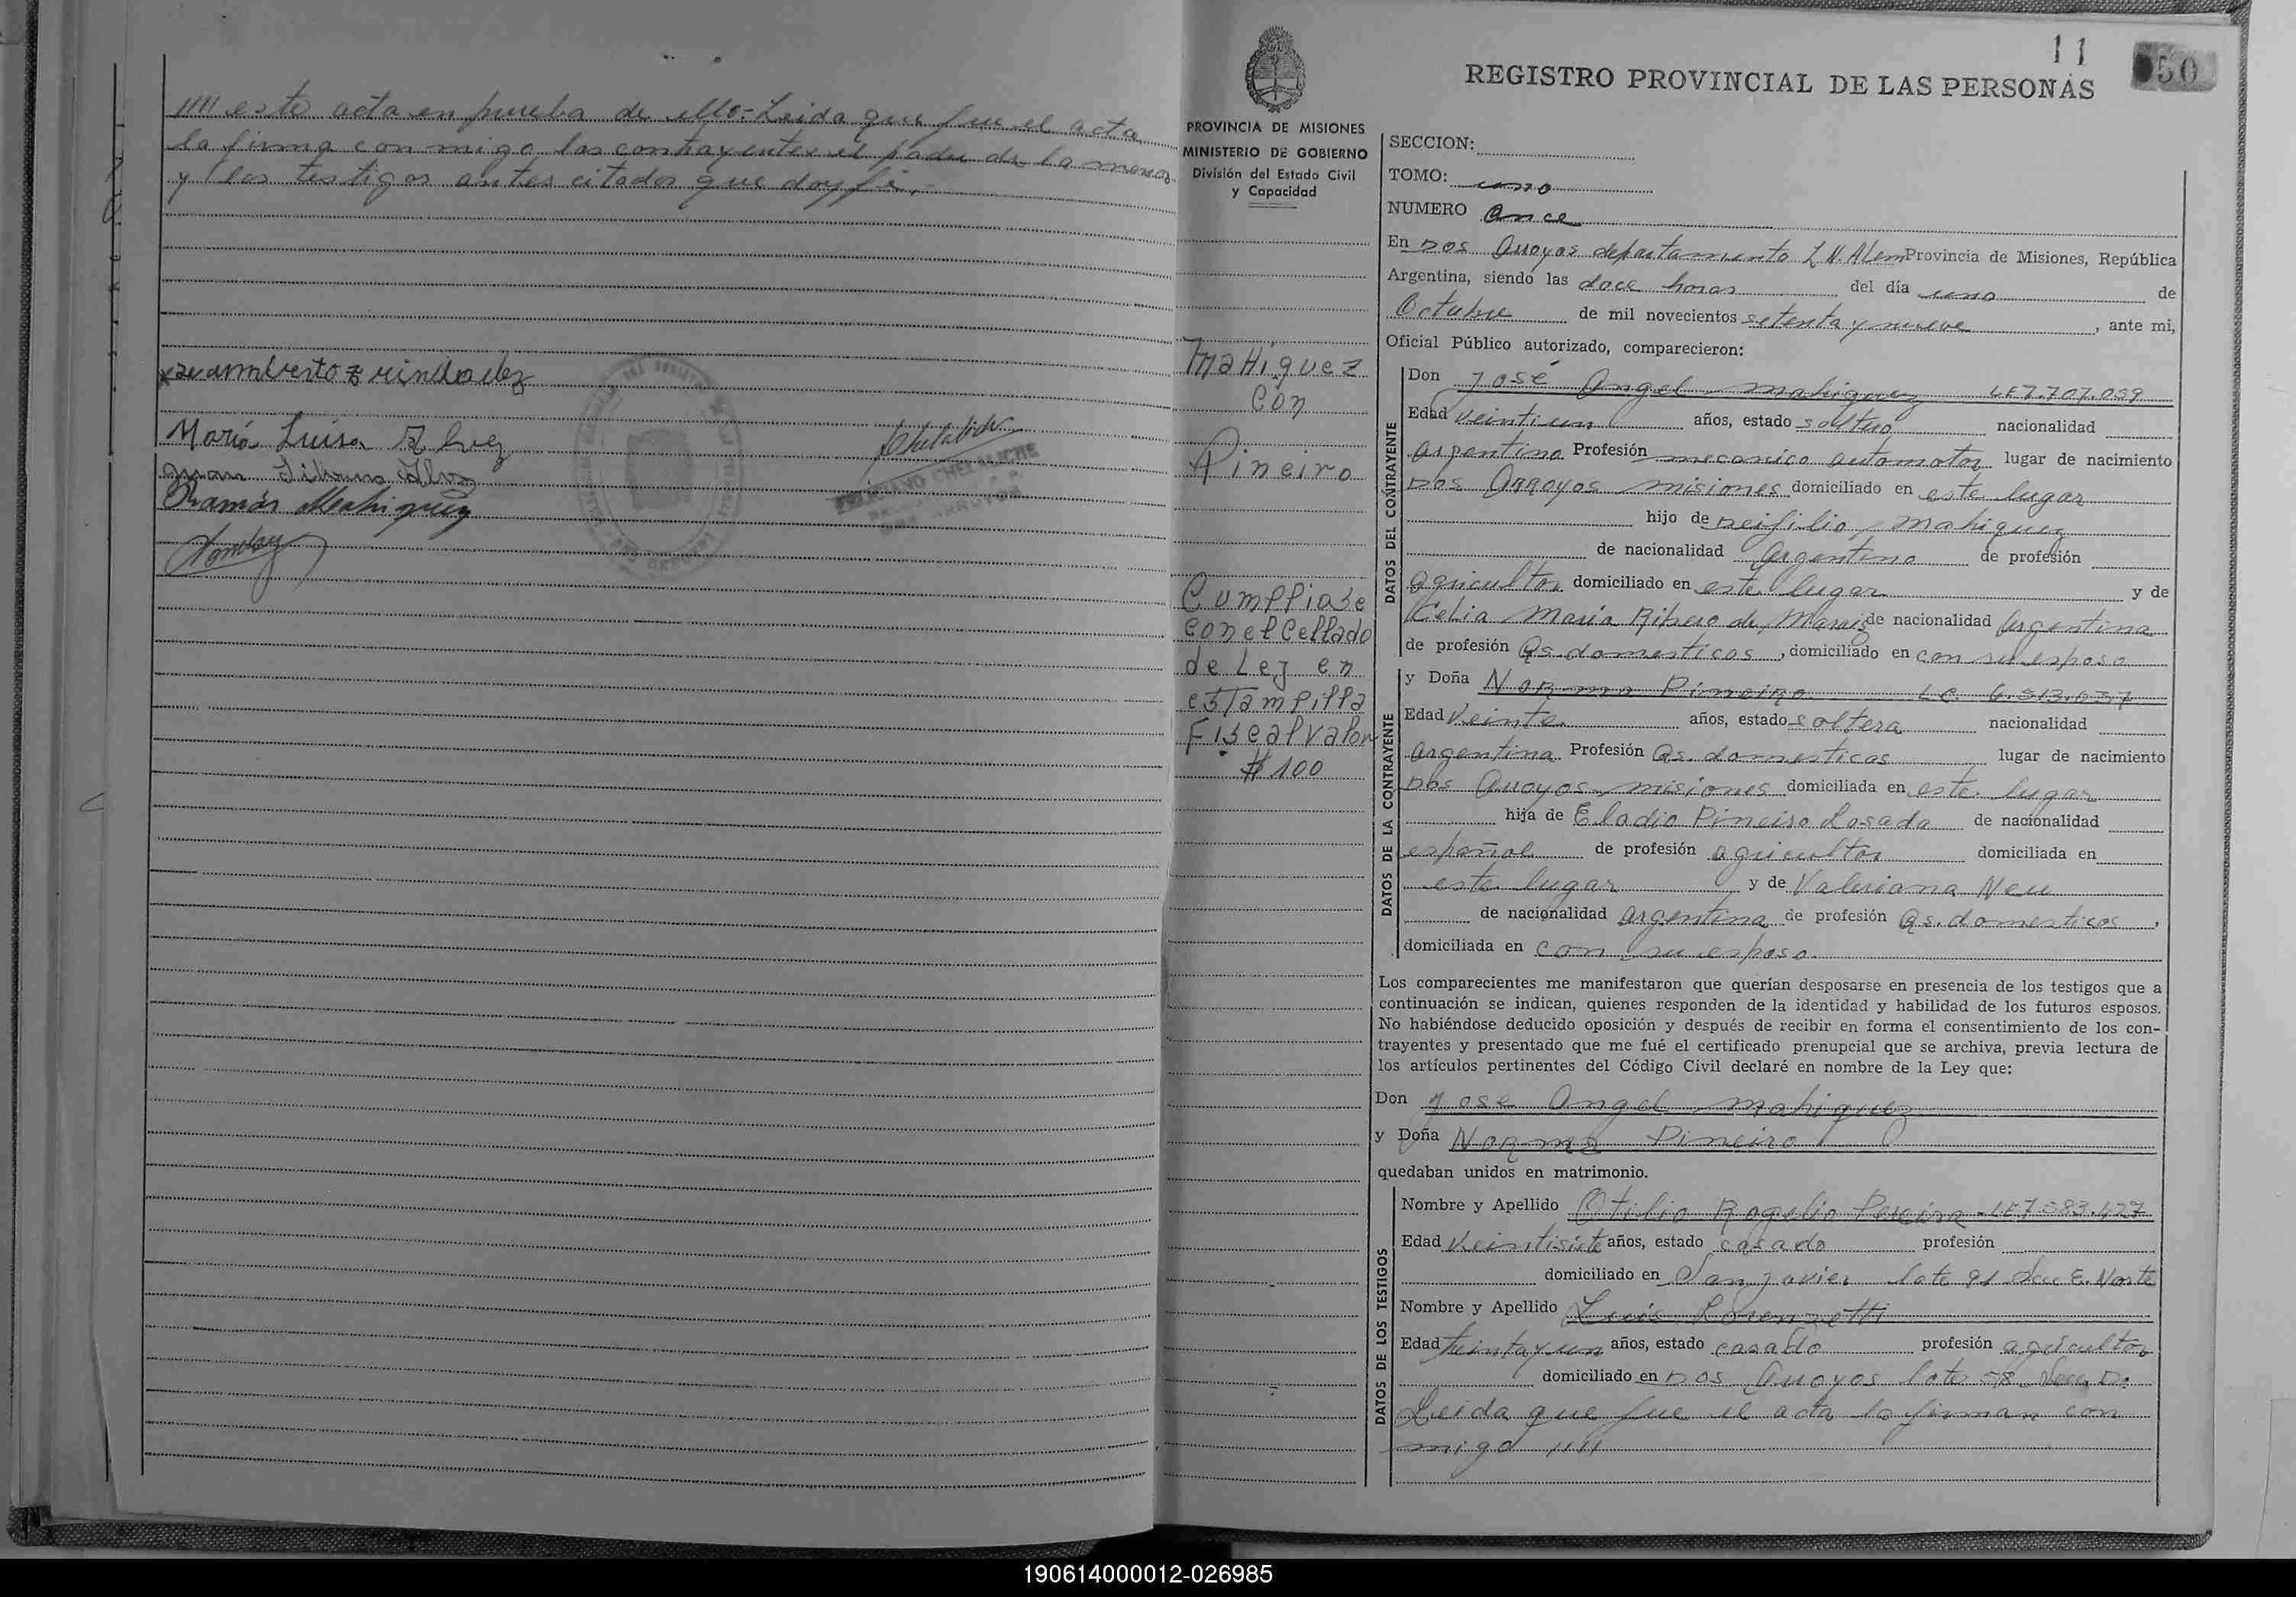 //// este acta en prueba de ello.- Leida que fue el acta
la firma con migo los contrayentes el padre de la menor
y los testigos antes citados que doy fé.-
María Luisa
Ramón Mahiquez
11
50
REGISTRO PROVINCIAL DE LAS PERSONAS
PROVINCIA DE MISIONES
MINISTERIO DE GOBIERNO
División del Estado Civil
y Capacidad
Mahiquez
Con
Pineiro
Cumpliase
con el Cellado
de Ley en
estampilla
Fiscal valor
$ 100
SECCION:
TOMO: uno
NUMERO once
En Dos Arroyos departamento L.N.Alem Provincia de Misiones, República
Argentina, siendo las doce horas del día uno de
Octubre de mil novecientos setenta y nueve, ante mi,
Oficial Público autorizado, comparecieron:
DATOS DEL CONTRAYENTE
Don José Angel Mahiquez LE 7.707.059
Edad veintiun años, estado soltero nacionalidad
argentino Profesión mecanico automotor lugar de nacimiento
Dos Arroyos Misiones domiciliado en este lugar
hijo de Neifilio Mahiquez
de nacionalidad Argentino de profesión
agricultor domiciliado en este lugar y de
Celia María Ribero de de nacionalidad Argentina
de profesión Qs. domesticos, domiciliado en con su esposo
DATOS DE LA CONTRAYENTE
y Doña Norma Pineiro LC 6.513.037
Edad veinte años, estado soltera nacionalidad
argentina Profesión Qs. domesticos lugar de nacimiento
Dos Arroyos Misiones domiciliada en este lugar
hija de Eladio Pineiro Losada de nacionalidad
español de profesión agricultor domiciliada en
este lugar y de Valeriana Neu
de nacionalidad argentina de profesión Qs. domesticos,
domiciliada en con su esposo.
Los comparecientes me manifestaron que querían desposarse en presencia de los testigos que a
continuación se indican, quienes responden de la identidad y habilidad de los futuros esposos.
No habiéndose deducido oposición y después de recibir en forma el consentimiento de los con-
trayentes y presentado que me fué el certificado prenupcial que se archiva, previa lectura de
los artículos pertinentes del Código Civil declaré en nombre de la Ley que:
Don Jose Angel Mahiquez
y Doña Norma Pineiro
quedaban unidos en matrimonio.
DATOS DE LOS TESTIGOS
Nombre y Apellido Otilio Rogelio Pereira - LE 7583.427
Edad veintisiete años, estado casado profesión
domiciliado en San Javier lote 91 Secc E. Norte
Nombre y Apellido Luis Lorenzetti
Edad treinta y un años, estado casado profesión agricultor
domiciliado en Dos Arroyos lote 58 Secc D.
Leida que fue el acta la firman con
migo ////
190614000012-026985